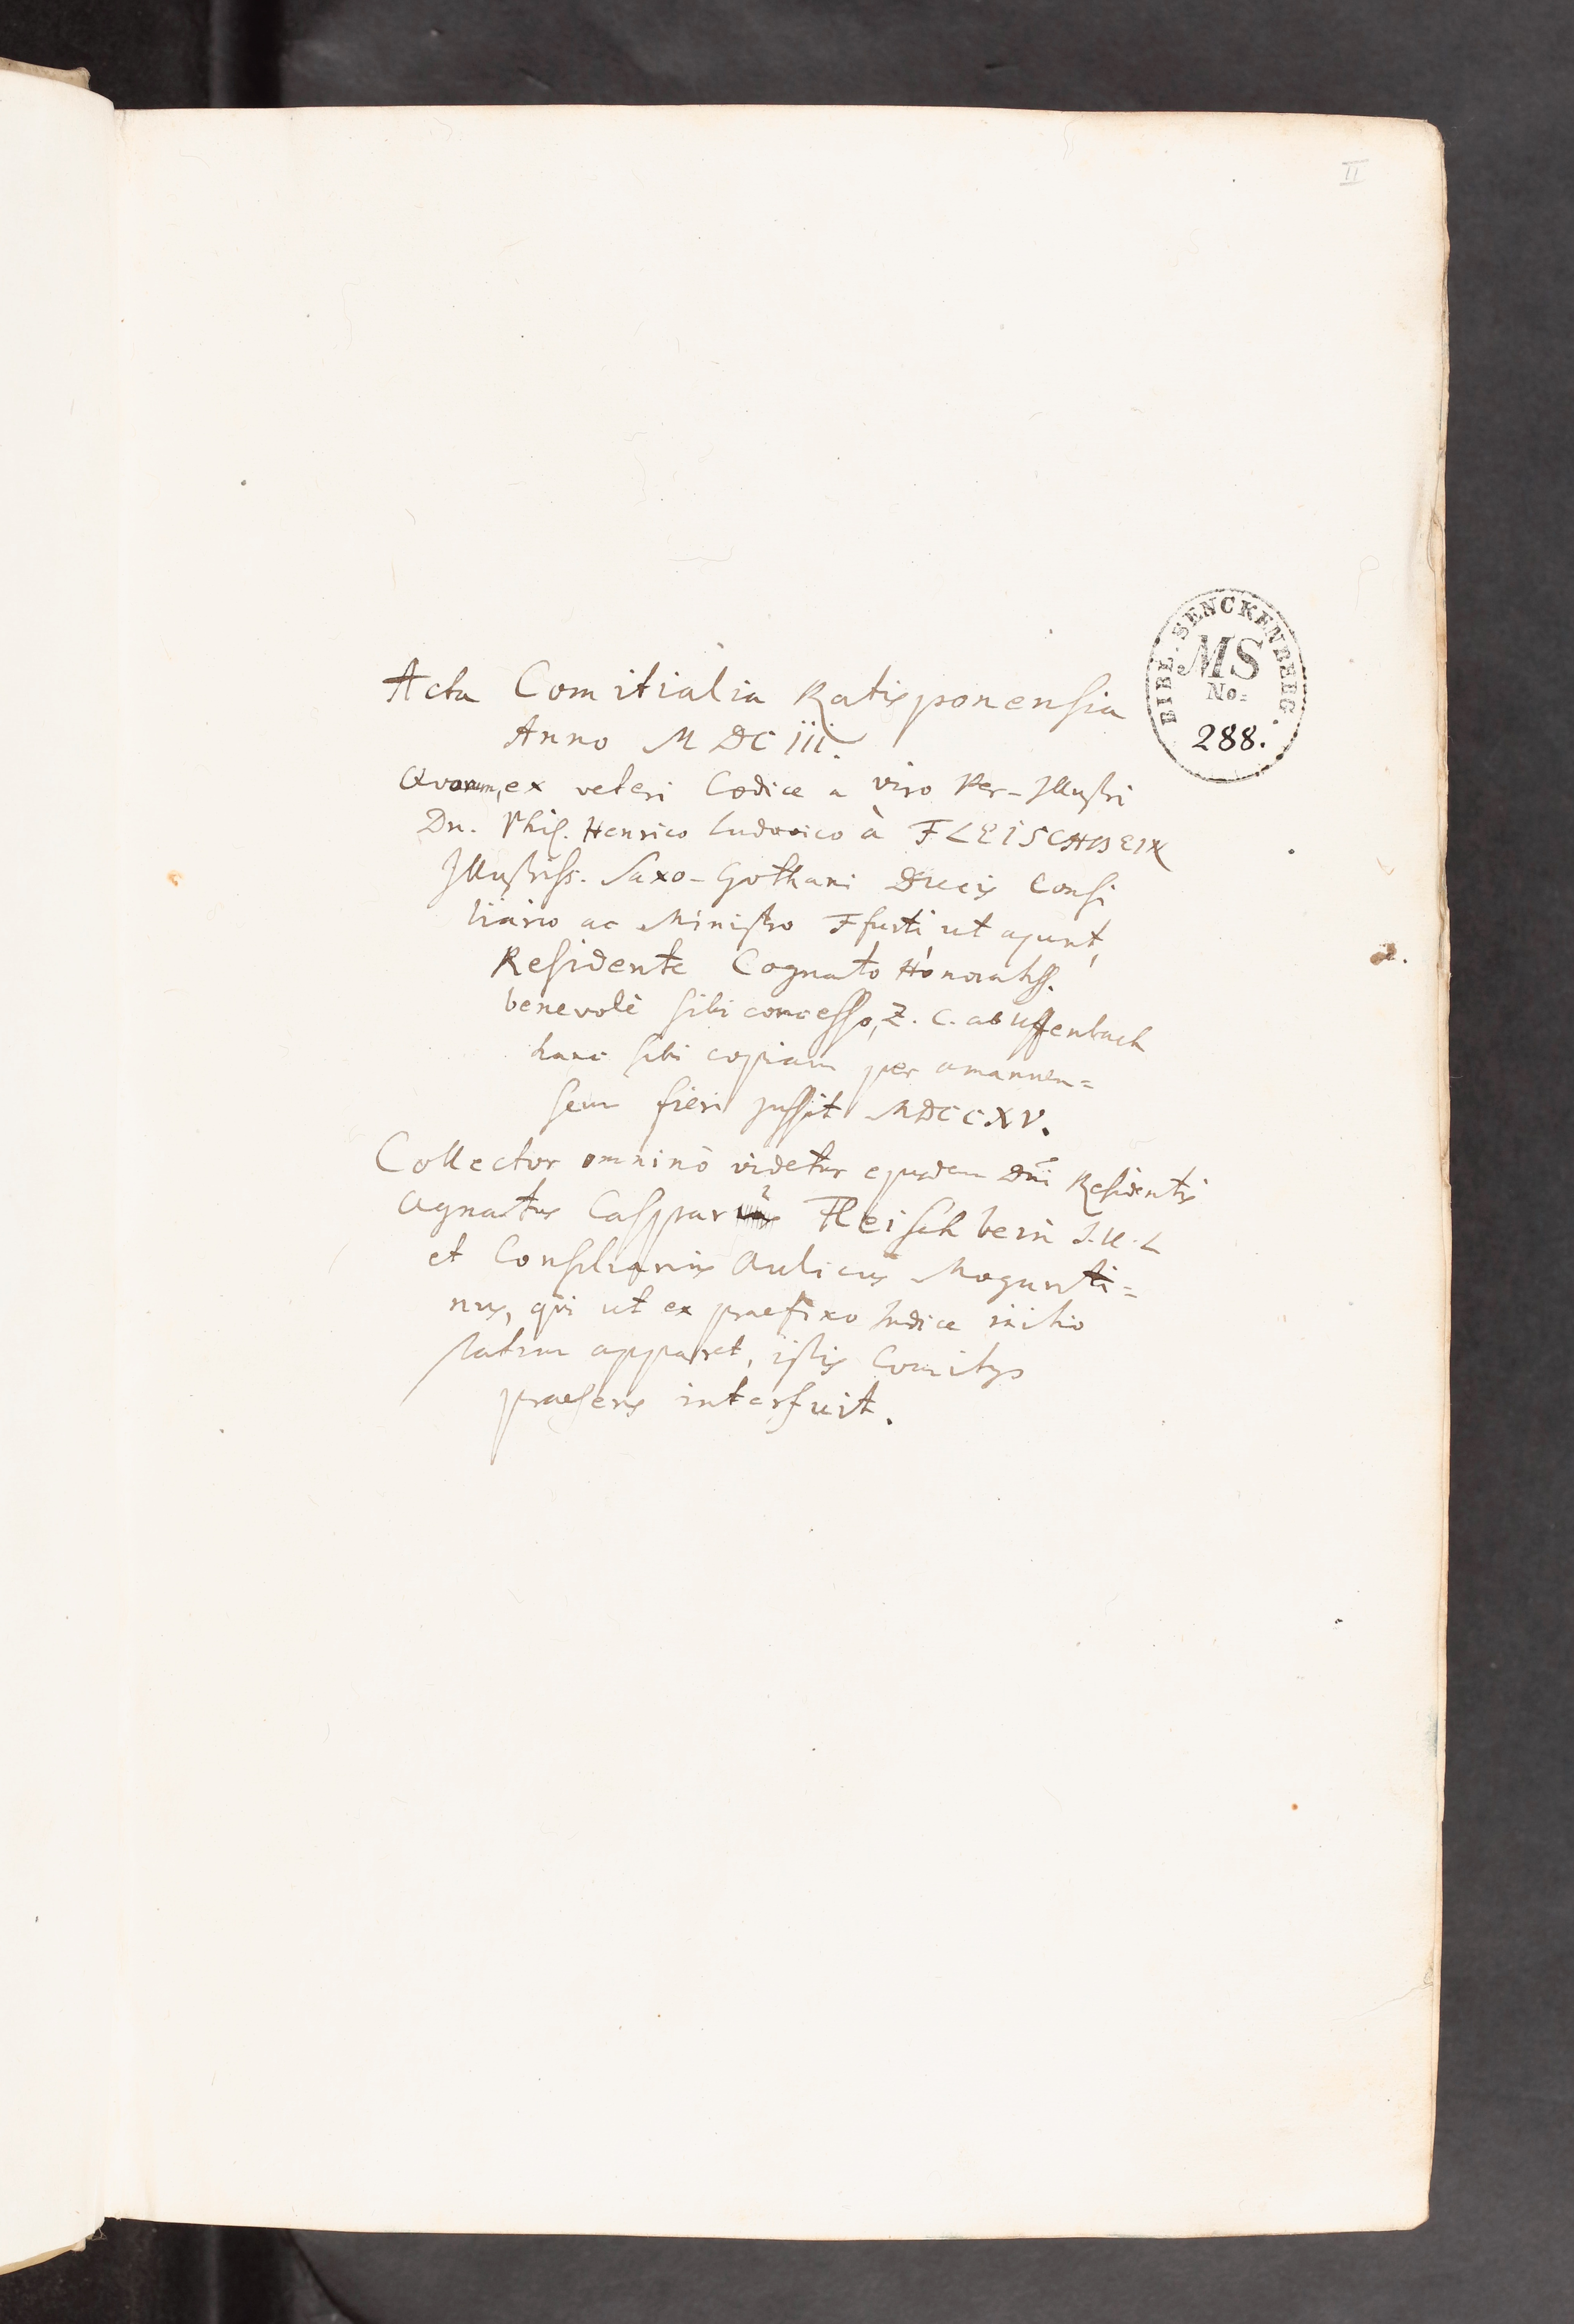 II
BIBL. SENCKENBERG.
MS
No:
288.
Acta Comitialia Ratisponensia
Anno MDCiii.
Qvorum, ex veteri Codice a viro Per-Illustri
Dn. Phil. Henrico Ludovico à FLEISCHBEIN
Illustriss. Saxo-Gothani Ducis Consi
liario ac Ministro Ffurti ut ajunt,
Residente Cognato Honoratiss.
benevolè sibi concesso, Z. C. ab Uffenbach
hanc sibi copiam per amanuen=
sem fieri jussit MDCCXV.
Collector omninò videtur ejusdem Dn̄i Residentis
Agnatus Caspar Fleischbein J.U.L
et Consiliarius Aulicus Mogunti=
nus, qui ut ex praefixo Indice initio
statim apparet, istis Comitijs
praesens interfuit.